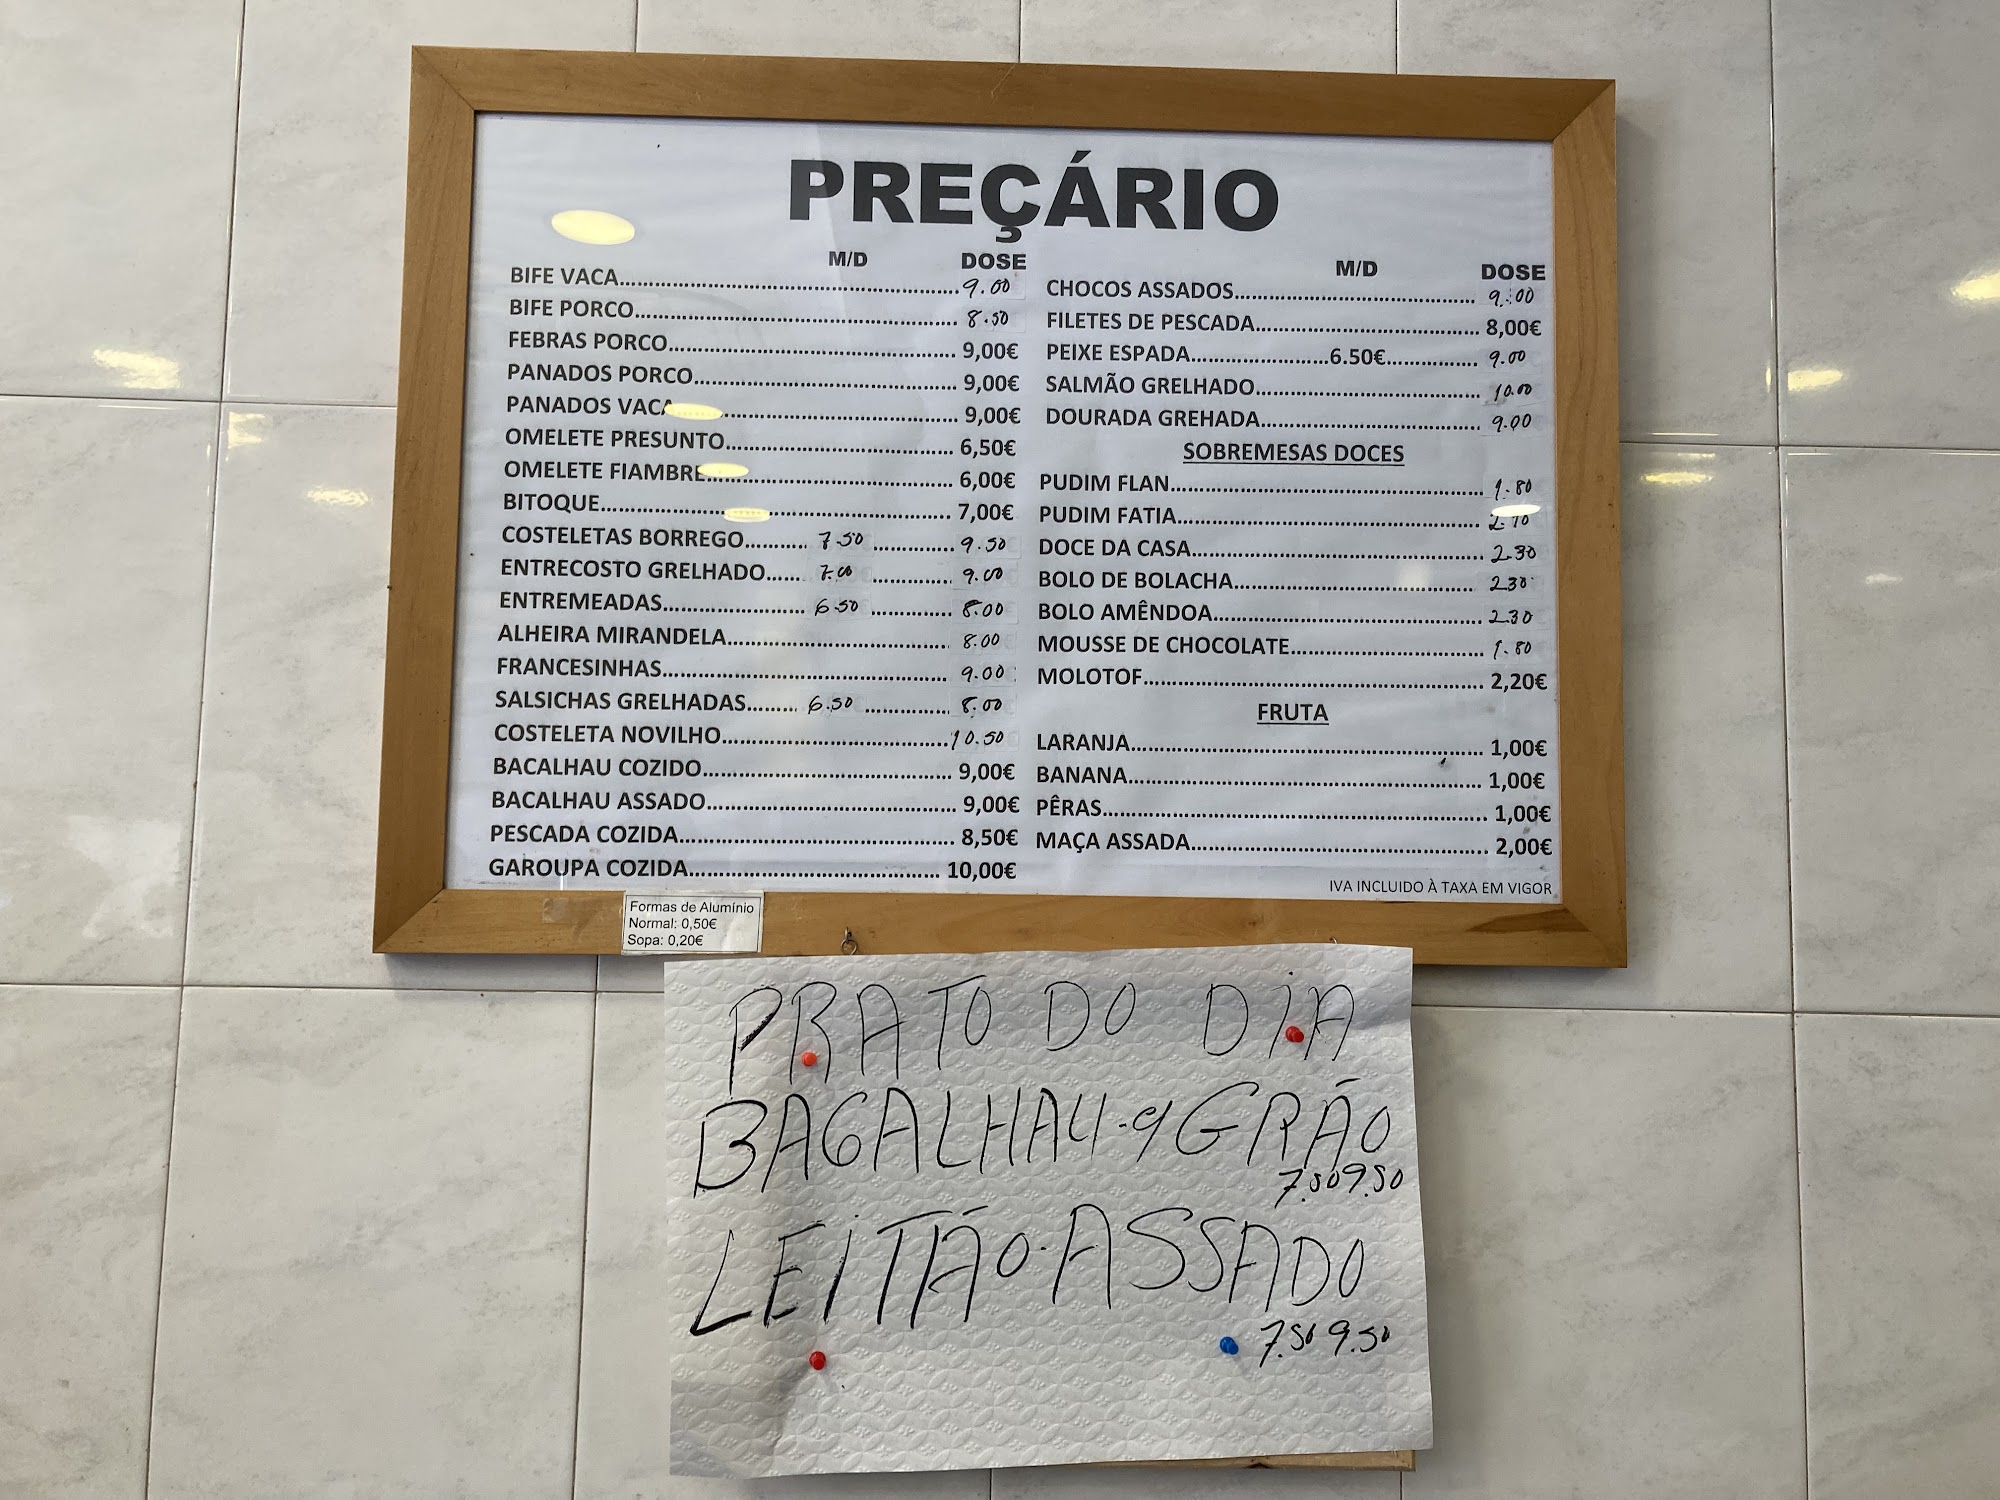 PREÇÁRIO
M/D DOSE
BIFE VACA 9.00
BIFE PORCO 8.50
FEBRAS PORCO 9,00€
PANADOS PORCO 9,00€
PANADOS VACA 9,00€
OMELETE PRESUNTO 6,50€
OMELETE FIAMBRE 6,00€
BITOQUE 7,00€
COSTELETAS BORREGO 7.50 9.50
ENTRECOSTO GRELHADO 7.00 9.00
ENTREMEADAS 6.50 8.00
ALHEIRA MIRANDELA 8.00
FRANCESINHAS 9.00
SALSICHAS GRELHADAS 6.50 8.00
COSTELETA NOVILHO 10.50
BACALHAU COZIDO 9,00€
BACALHAU ASSADO 9,00€
PESCADA COZIDA 8,50€
GAROUPA COZIDA 10,00€
M/D DOSE
CHOCOS ASSADOS 9.00
FILETES DE PESCADA 8,00€
PEIXE ESPADA 6.50€ 9.00
SALMÃO GRELHADO 10.00
DOURADA GREHADA 9.00
SOBREMESAS DOCES
PUDIM FLAN 1.80
PUDIM FATIA
DOCE DA CASA 2.30
BOLO DE BOLACHA 2.30
BOLO AMÊNDOA 2.30
MOUSSE DE CHOCOLATE 1.80
MOLOTOF 2,20€
FRUTA
LARANJA 1,00€
BANANA 1,00€
PÊRAS 1,00€
MAÇA ASSADA 2,00€
IVA INCLUIDO À TAXA EM VIGOR
Formas de Alumínio
Normal: 0,50€
Sopa: 0,20€
PRATO DO DIA
BACALHAU c/ GRÃO
7.50 9.50
LEITÃO ASSADO
7.50 9.50